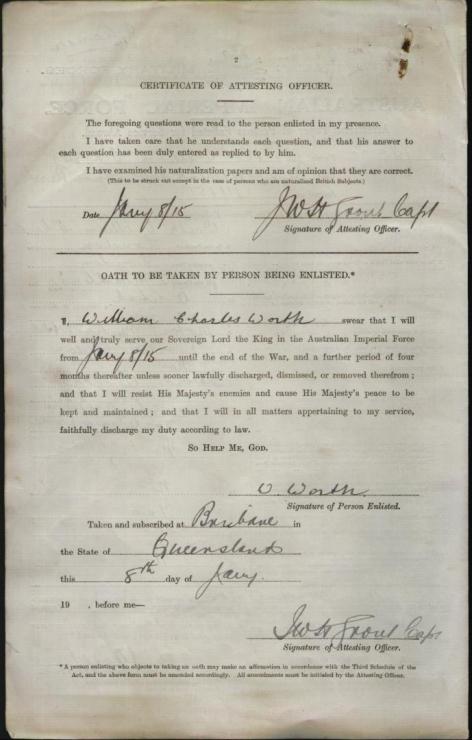 2
CERTIFICATE OF ATTESTING OFFICER.
The foregoing questions were read to the person enlisted in my presence.
I have taken care that he understands each question, and that his answer to
each question has been duly entered as replied to by him.
I have examined his naturalization papers and am of opinion that they are correct.
(This to be struck out except in the case of persons who are naturalised British Subjects.)
Date Jany 8/15 JWH Grout Capt
Signature of Attesting Officer.
OATH TO BE TAKEN BY PERSON BEING ENLISTED.*
I, William Charles Worth swear that I will
well and truly serve our Sovereign Lord the King in the Australian Imperial Force
from Jany 8/15 until the end of the War, and a further period of four
months thereafter unless sooner lawfully discharged, dismissed, or removed therefrom;
and that I will resist His Majesty's enemies and cause His Majesty's peace to be
kept and maintained; and that I will in all matters appertaining to my service,
faithfully discharge my duty according to law.
SO HELP ME, GOD.
W. Worth.
Signature of Person Enlisted.
Taken and subscribed at Brisbane in
the State of Queensland
this 8th day of Jany.
19 , before me—
JWH Grout Capt
Signature of Attesting Officer.
*A person enlisting who objects to taking an oath may make an affirmation in accordance with the Third Schedule of the
Act, and the above form must be amended accordingly. All amendments must be initialed by the Attesting Officer.